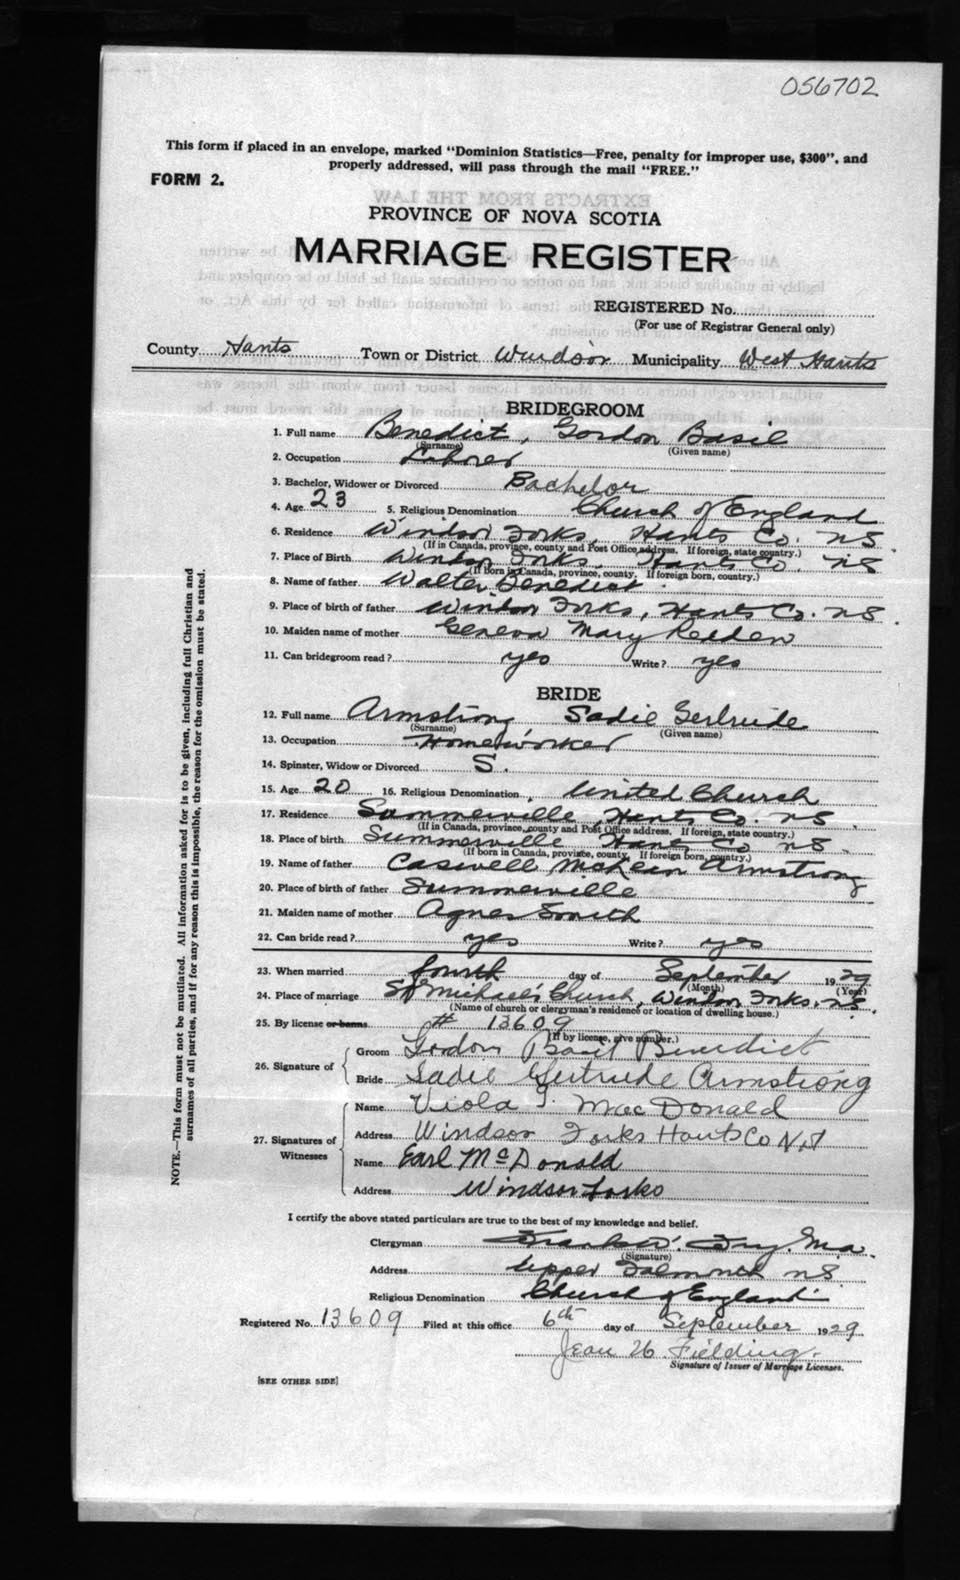 056702
This form if placed in an envelope, marked "Dominion Statistics—Free, penalty for improper use, $300", and
properly addressed, will pass through the mail "FREE."
FORM 2.
PROVINCE OF NOVA SCOTIA
MARRIAGE REGISTER
REGISTERED No.
(For use of Registrar General only)
County Hants Town or District Windsor Municipality West Hants
BRIDEGROOM
1. Full name Benedict, Gordon Basil
(Surname) (Given name)
2. Occupation Laborer
3. Bachelor, Widower or Divorced Bachelor
4. Age 23 5. Religious Denomination Church of England
6. Residence Windsor Forks, Hants Co. NS.
(If in Canada, province, county and Post Office address. If foreign, state country.)
7. Place of Birth Windsor Forks, Hants Co. NS
(If Born in Canada, province, county. If foreign born, country.)
8. Name of father Walter Benedict
9. Place of birth of father Windsor Forks, Hants Co. NS.
10. Maiden name of mother Geneva Mary Redden
11. Can bridegroom read? yes Write? yes
BRIDE
12. Full name Armstrong Sadie Gertrude
(Surname) (Given name)
13. Occupation Homeworker
14. Spinster, Widow or Divorced S.
15. Age 20 16. Religious Denomination United Church
17. Residence Summerville, Hants Co. NS.
(If in Canada, province, county and Post Office address. If foreign, state country.)
18. Place of birth Summerville Hants Co NS.
(If born in Canada, province, county. If foreign born, country.)
19. Name of father Caswell Armstrong
20. Place of birth of father Summerville
21. Maiden name of mother Agnes Smith
22. Can bride read? yes Write? yes
23. When married fourth day of September 1929
(Month) (Year)
24. Place of marriage St Michael's Church, Windsor Forks, NS.
(Name of church or clergyman's residence or location of dwelling house.)
25. By license or banns # 13609
(If by license, give number.)
26. Signature of Groom Gordon Basil Benedict
Bride Sadie Gertrude Armstrong
27. Signatures of Witnesses
Name Viola MacDonald
Address Windsor Forks Hants Co N.S
Name Earl McDonald
Address Windsor Forks
I certify the above stated particulars are true to the best of my knowledge and belief.
Clergyman M.A.
(Signature)
Address Upper Falmouth NS.
Religious Denomination Church of England
Registered No. 13609 Filed at this office 6th day of September 1929
Jean W. Fielding.
Signature of Issuer of Marriage Licenses.
[SEE OTHER SIDE]
NOTE.—This form must not be mutilated. All information asked for is to be given, including full Christian and
surnames of all parties, and if for any reason this is impossible, the reason for the omission must be stated.